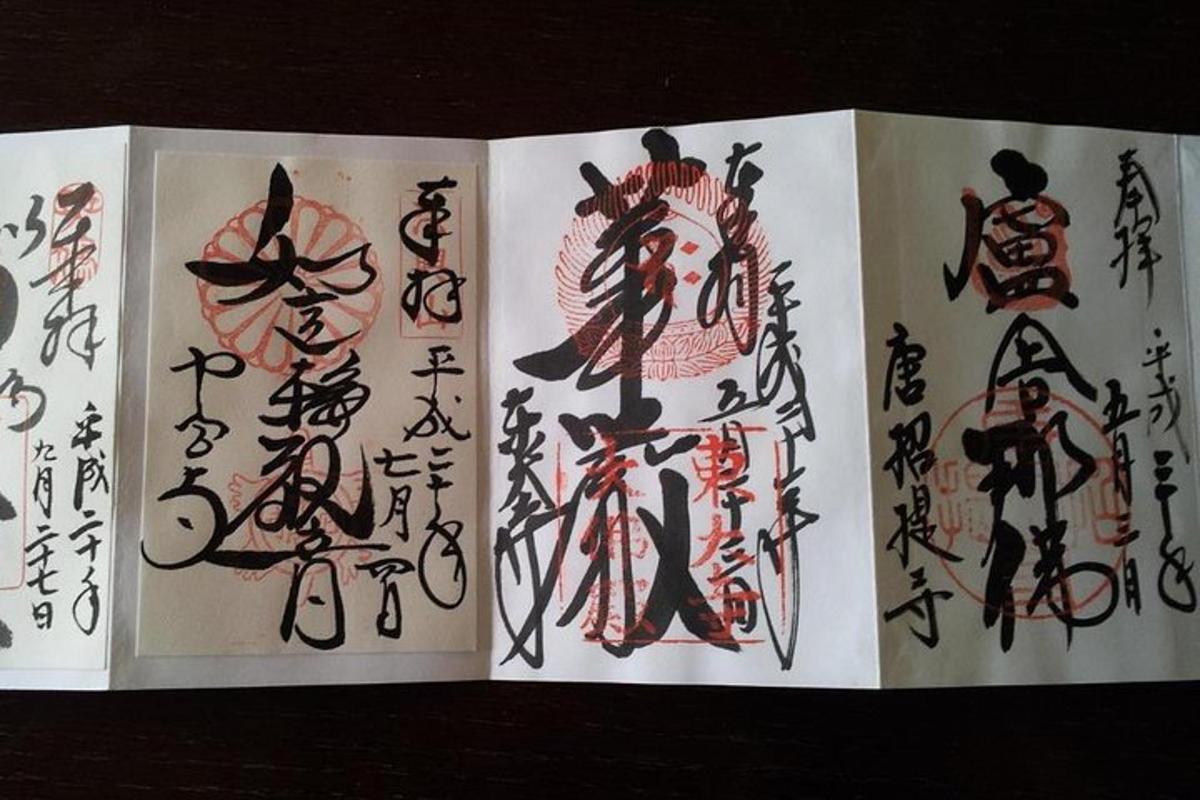 奉拝
平成二十年
五月三日
盧舎那佛
唐招提寺
奉拝
平成二十年
五月十三日
華厳
東大寺
東大寺
大佛殿
奉拝
平成二十年
七月四日
如意輪観音
中宮寺
奉拝
平成二十年
九月二十七日